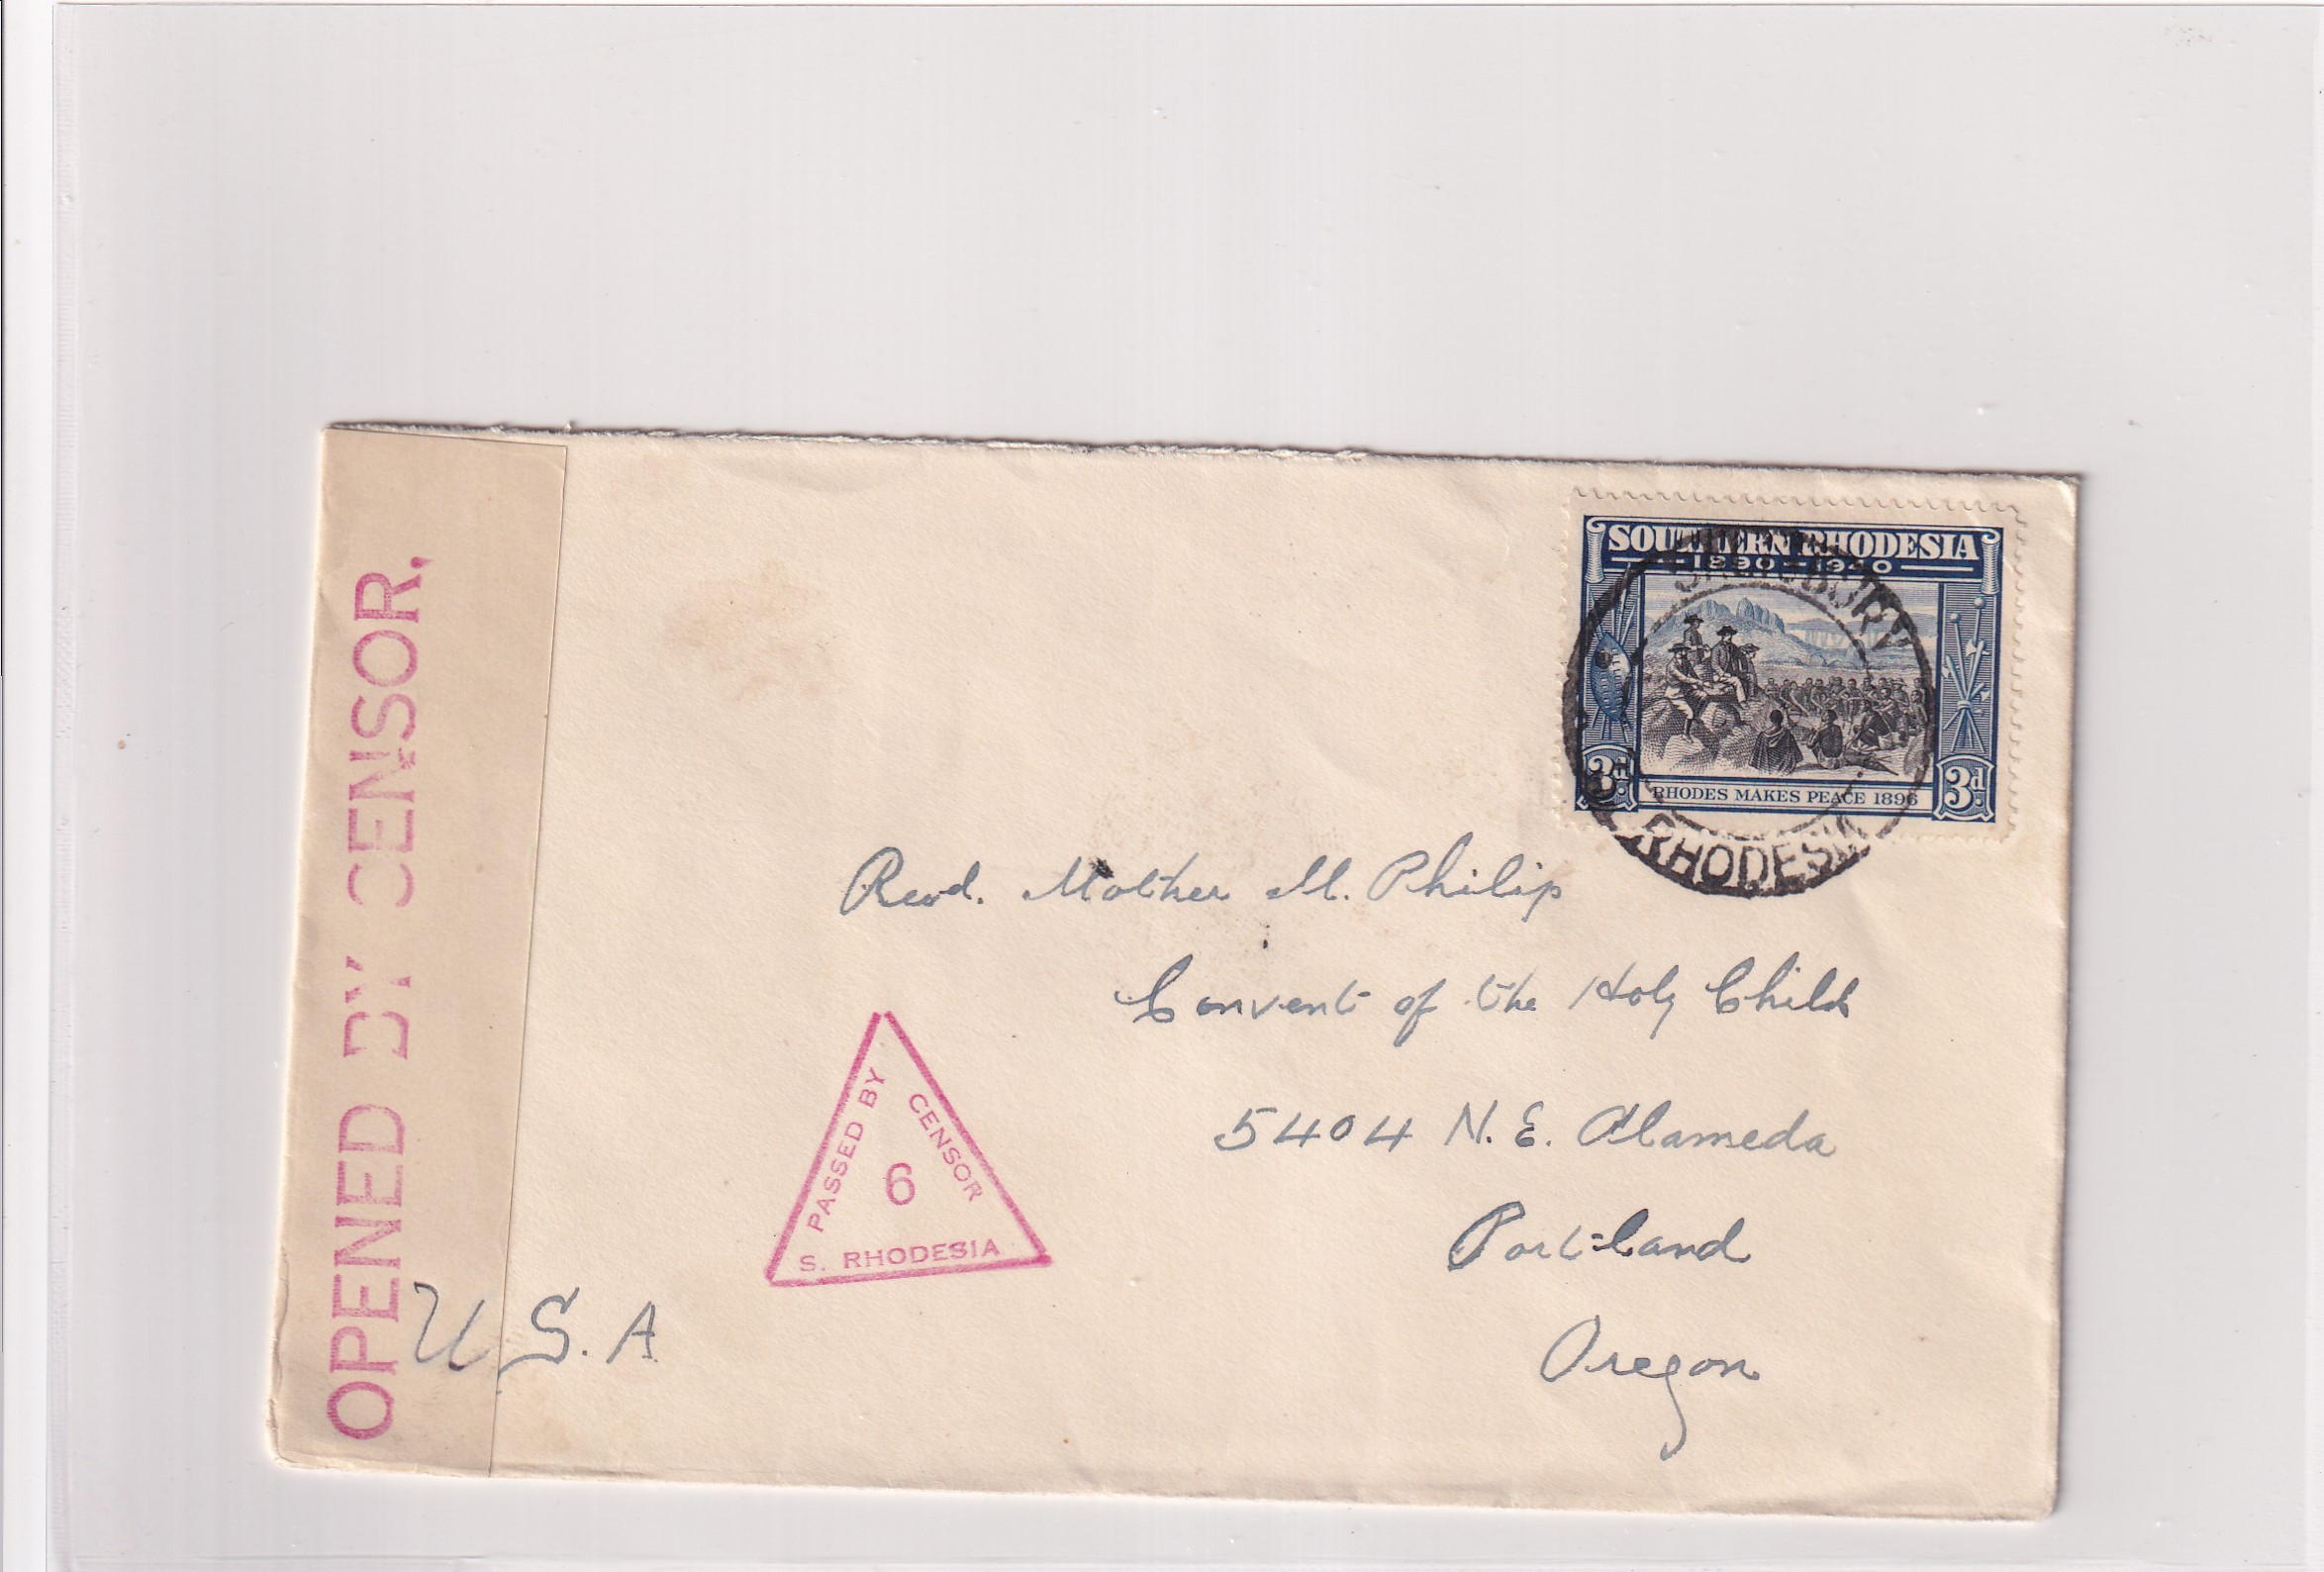 OPENED BY CENSOR.
SOUTHERN RHODESIA
1890-1940
3d.
3d.
RHODES MAKES PEACE 1896
SALISBURY
RHODESIA
Revd. Mother M. Philip
Convent of the Holy Child
5404 N.E. Alameda
Portland
Oregon
U.S.A
PASSED BY CENSOR
6
S. RHODESIA